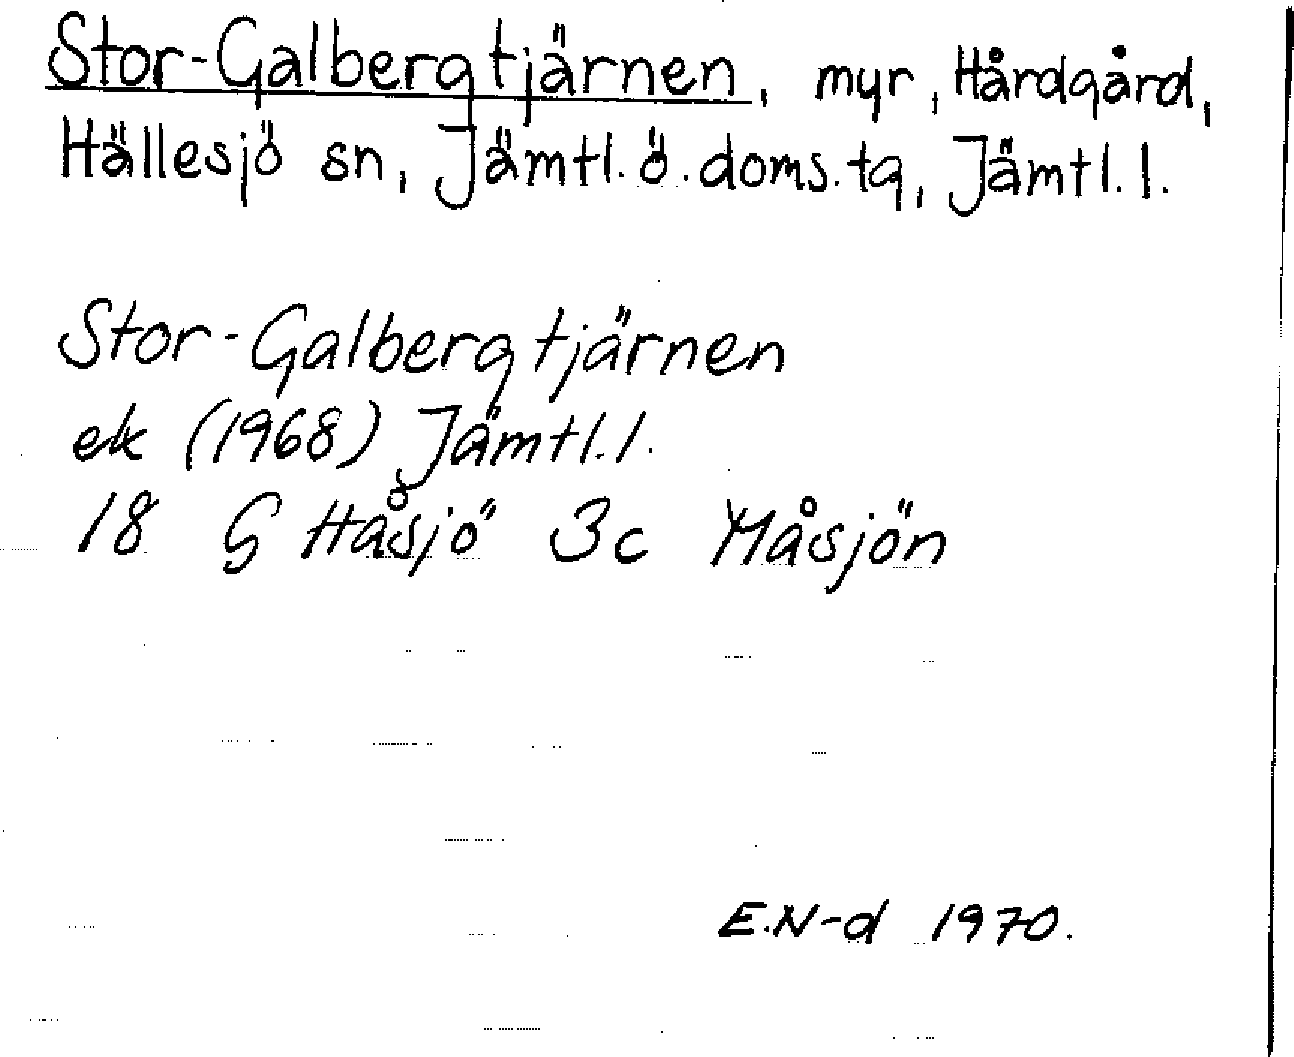 Stor-Galbergtjärnen, myr, Hårdgård,
Hällesjö sn, Jämtl. ö. doms. tg, Jämtl. l.
Stor-Galbergtjärnen
ek (1968) Jämtl. l.
18 G Håsjö 3c Måsjön
E.N-d 1970.